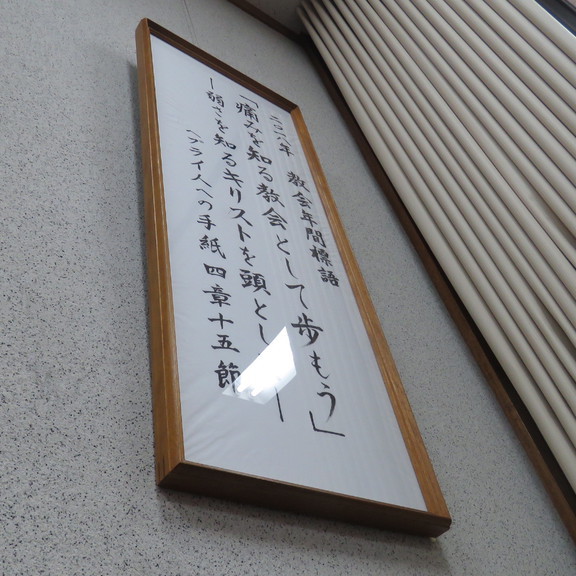 二〇一八年 教会年間標語
「痛みを知る教会として歩もう」
―弱さを知るキリストを頭とし ―
ヘブライ人への手紙 四章十五節